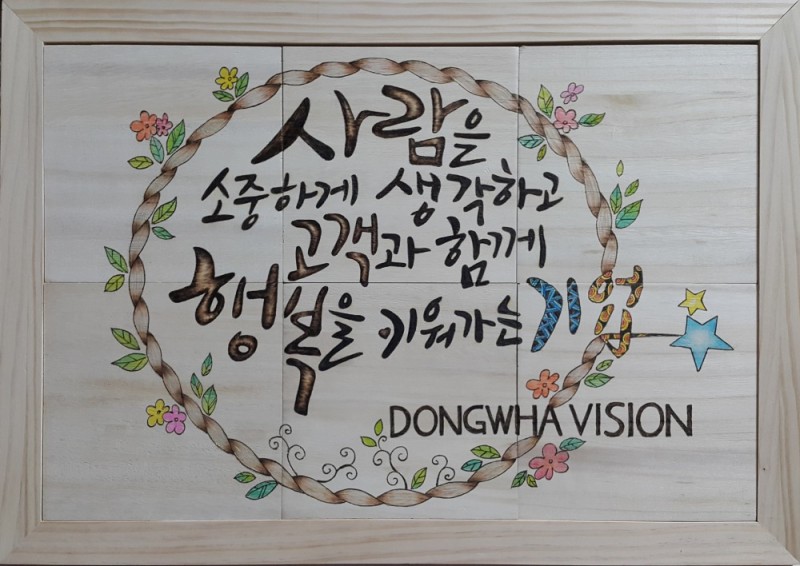 사람을
소중하게 생각하고
고객과 함께
행복을 키워가는 기업
DONGWHA VISION